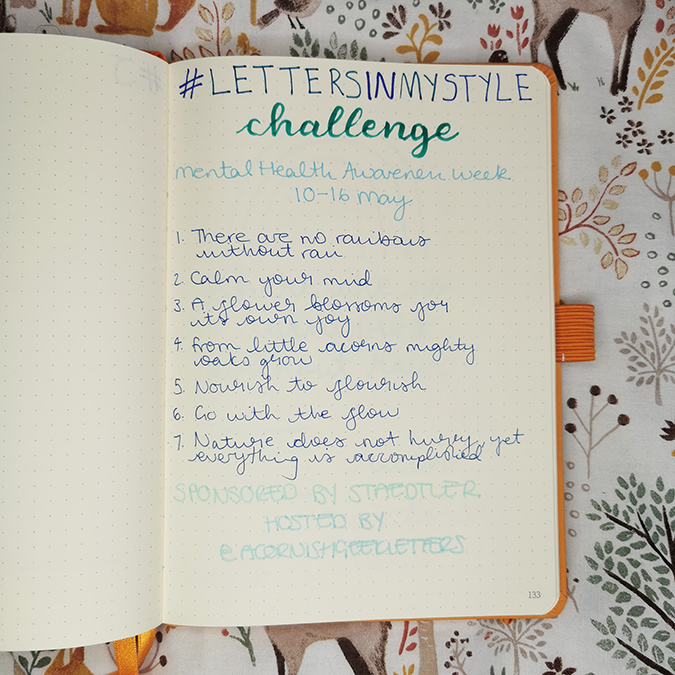 #LETTERSINMYSTYLE
challenge
mental Health Awareness week
10-16 May
1. There are no rainbows
without rain
2. Calm your mind
3. A flower blossoms for
its own joy
4. From little acorns mighty
oaks grow
5. Nourish to flourish
6. Go with the flow
7. Nature does not hurry, yet
everything is accomplished
SPONSORED BY STAEDTLER
HOSTED BY
133